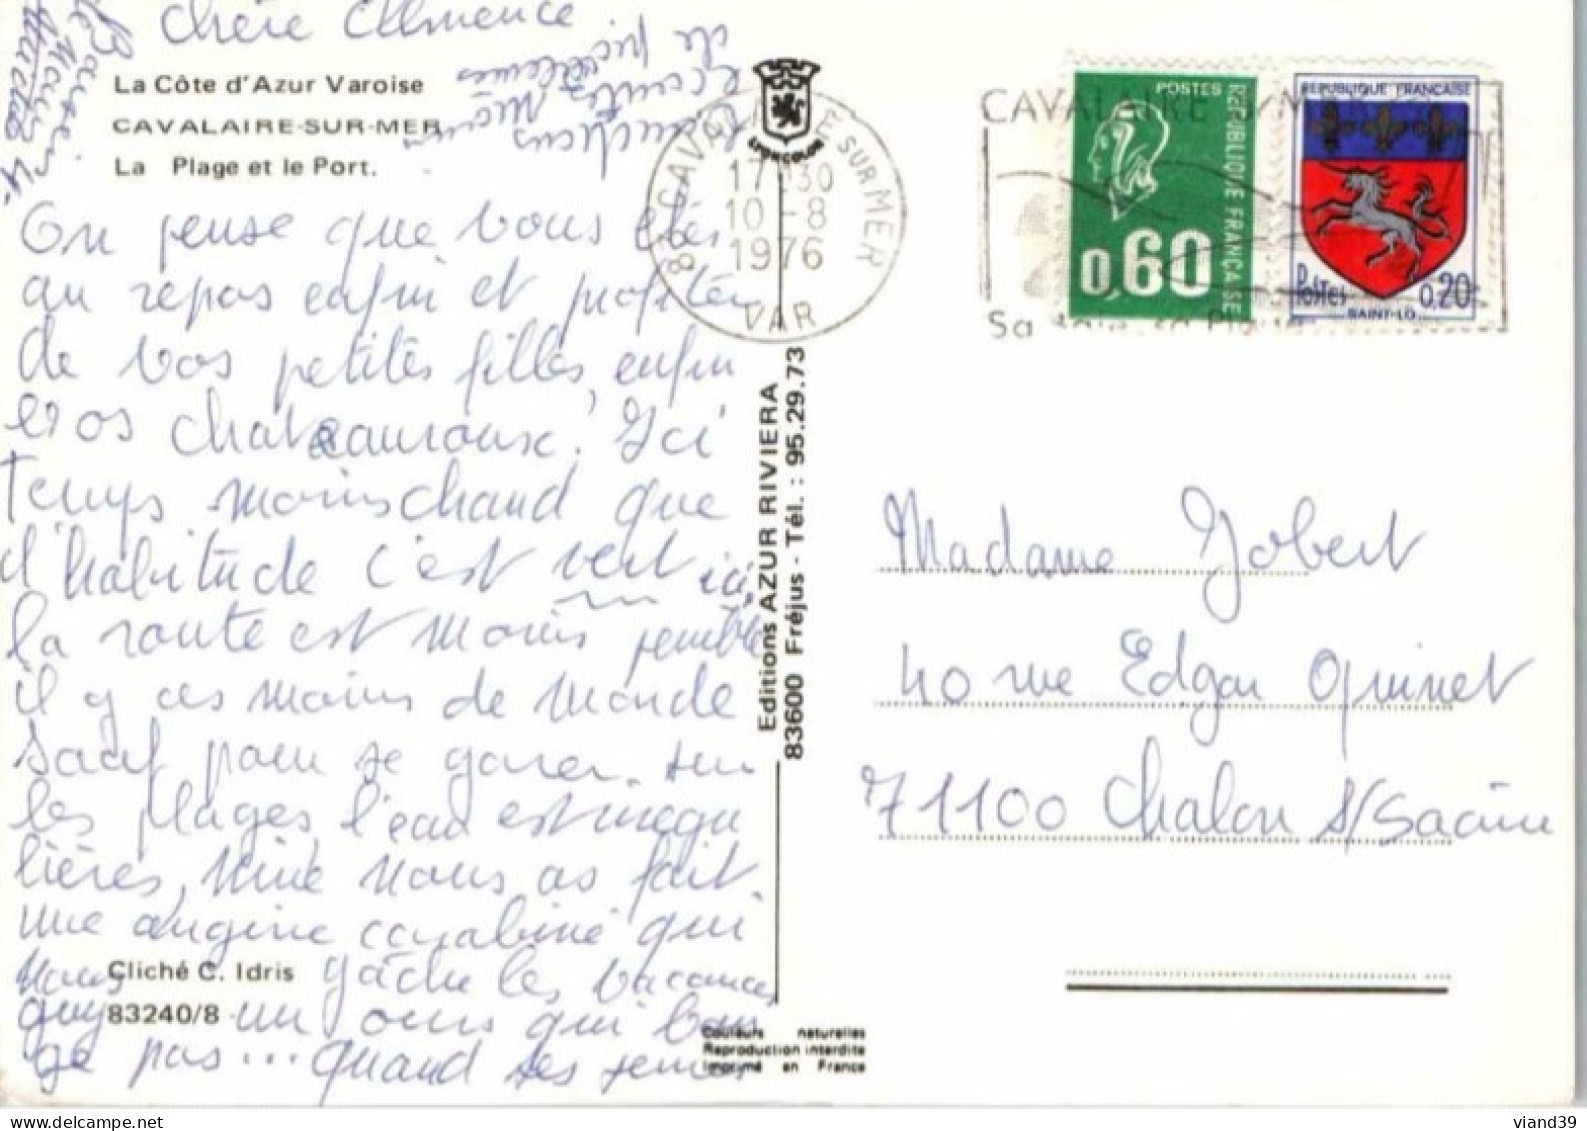 Chère Clémence
La Côte d'Azur Varoise
CAVALAIRE-SUR-MER
La Plage et le Port.
On pense que vous êtes
au repos enfin et profitez
de vos petites filles, enfin
Chateauroux. Ici
temps moins chaud que
d'habitude c'est vert ici,
la route est moins pénible
il y a moins de monde
sauf pour se garer. sur
les plages, l'eau est irrégu
lières, Mine nous as fait
une angine carabiné qui
nous gâche les vacances
Guy un ours qui bou
ge pas... quand ses
Cliché C. Idris
83240/8
de piscicelemes
Baisers
LYONCOLOR
83 CAVALAIRE SUR MER
17-30
10-8
1976
VAR
Editions AZUR RIVIERA
83600 Fréjus - Tél. : 95.29.73
Couleurs naturelles
Reproduction interdite
Imprimé en France
CAVALAIRE S/MER
POSTES
REPUBLIQUE FRANÇAISE
0,60
REPUBLIQUE FRANÇAISE
Postes 0,20
SAINT-LO
Madame Jobert
40 rue Edgar Quinet
71100 Chalon s/Saône
viand39